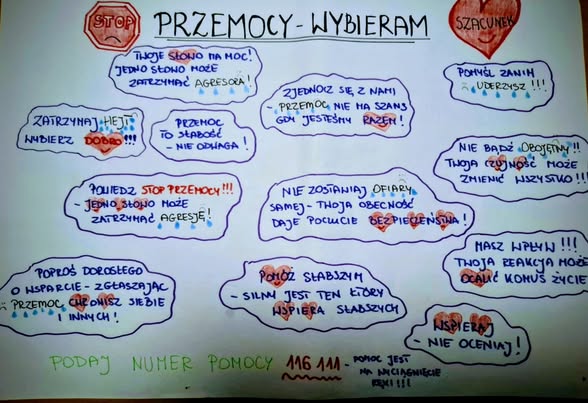 STOP PRZEMOCY - WYBIERAM SZACUNEK
TWOJE SŁOWO MA MOC!
JEDNO SŁOWO MOŻE
ZATRZYMAĆ AGRESORA!
ZJEDNOCZ SIĘ Z NAMI
- PRZEMOC NIE MA SZANS
GDY JESTEŚMY RAZEM!
POMYŚL ZANIM
UDERZYSZ!!!
ZATRZYMAJ HEJT
WYBIERZ DOBRO!!!
PRZEMOC
TO SŁABOŚĆ
- NIE ODWAGA!
NIE BĄDŹ OBOJĘTNY!!
TWOJA CZUJNOŚĆ MOŻE
ZMIENIĆ WSZYSTKO!!!
POWIEDZ STOP PRZEMOCY!!!
- JEDNO SŁOWO MOŻE
ZATRZYMAĆ AGRESJĘ!
NIE ZOSTAWIAJ OFIARY
SAMEJ - TWOJA OBECNOŚĆ
DAJE POCZUCIE BEZPIECZEŃSTWA!
MASZ WPŁYW!!!
TWOJA REAKCJA MOŻE
OCALIĆ KOMUŚ ŻYCIE
POPROŚ DOROSŁEGO
O WSPARCIE - ZGŁASZAJĄC
PRZEMOC CHRONISZ SIEBIE
I INNYCH!
POMÓŻ SŁABSZYM
- SILNY JEST TEN KTÓRY
WSPIERA SŁABSZYCH
WSPIERAJ
- NIE OCENIAJ!
PODAJ NUMER POMOCY 116 111 - POMOC JEST
NA WYCIĄGNIĘCIE
RĘKI!!!